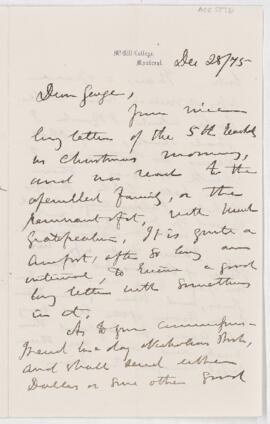 McGill College,
Montreal.
Dec 28/75
Dear George,
Your nice
long letter of the 5th reached
us Christmas morning,
and was read to the
assembled family, or the
remnant of it, with much
gratification. It is quite a
comfort, after so long an
interval, to receive a good
long letter with something
in it.
As to your
and shall send either
Dallas or some other good